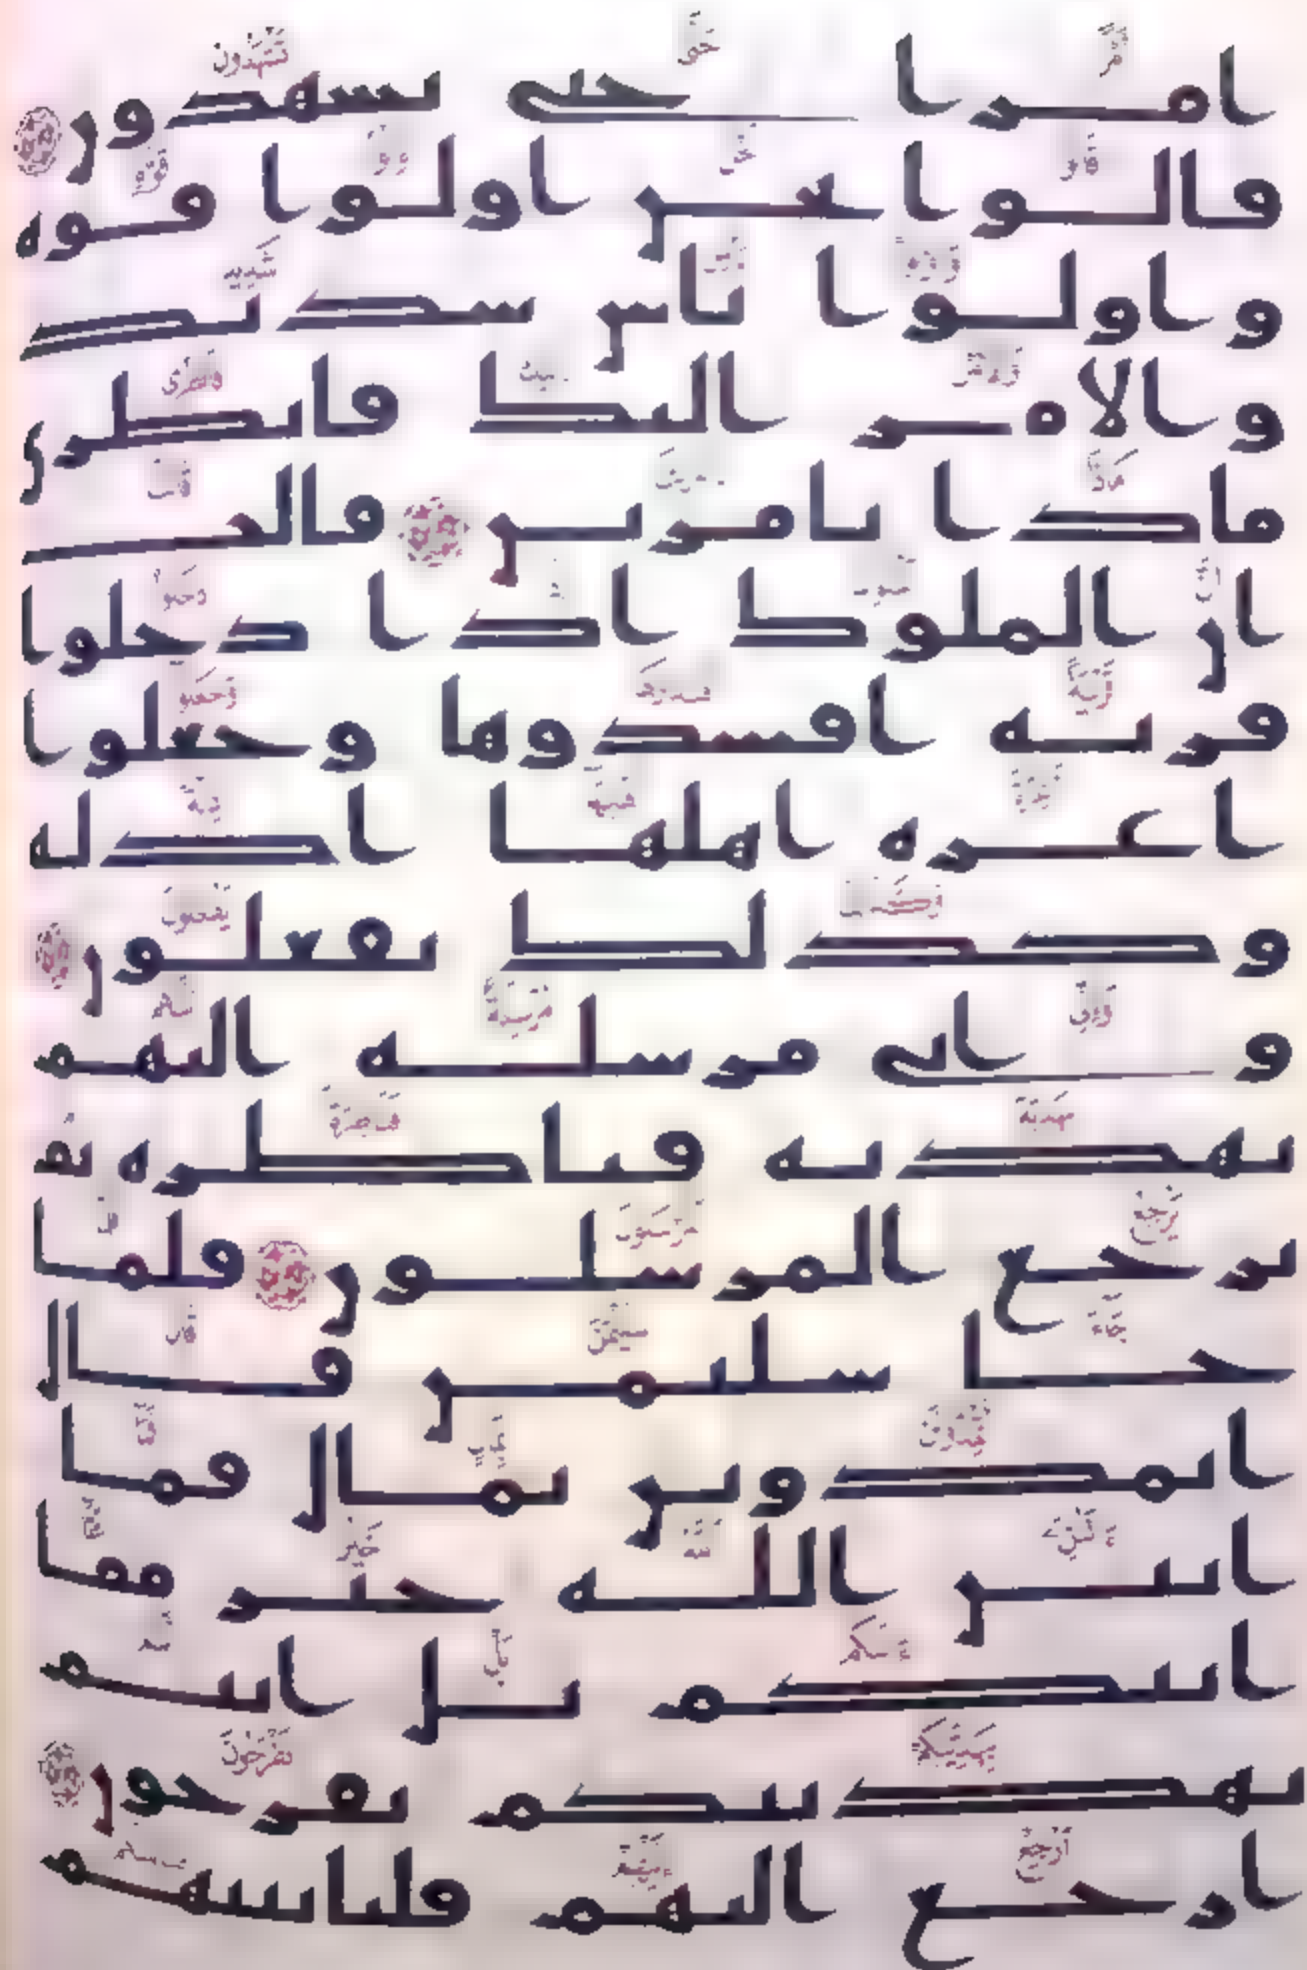 امرا حتى تشهدون
قالوا نحن اولوا قوه
واولوا باس شديد
والامر اليك فانظري
ماذا تامرين قالت
ان الملوك اذا دخلوا
قريه افسدوها وجعلوا
اعزه اهلها اذله
وكذلك يفعلون
واني مرسله اليهم
بهديه فناظره بم
يرجع المرسلون فلما
جا سليمن قال
اتمدونن بمال فما
اتين الله خير مما
اتيكم بل انتم
بهديتكم تفرحون
ارجع اليهم فلناتينهم